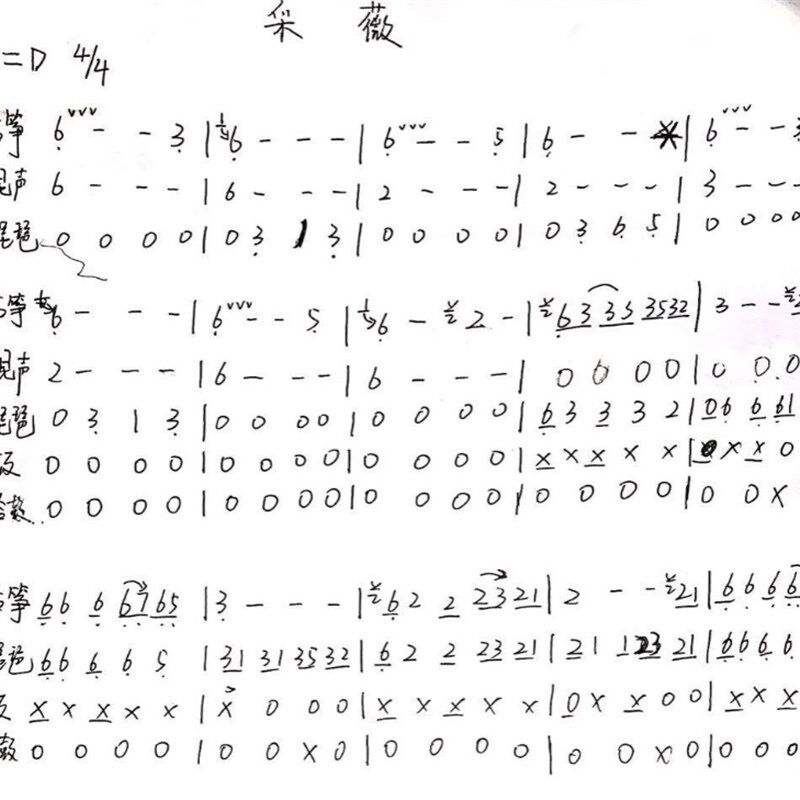 采 薇
=D 4/4
筝 6ᵛᵛᵛ - - 3 | 6 - - - | 6ᵛᵛᵛ - - 5 | 6 - - | 6ᵛᵛᵛ - - 3
声 6 - - - | 6 - - - | 2 - - - | 2 - - - | 3 - - -
琶 0 0 0 0 | 0 3 1 3 | 0 0 0 0 | 0 3 6 5 | 0 0 0 0
筝 6 - - - | 6ᵛᵛᵛ - - 5 | 6 - 2 - | 6 3 3 5 3532 | 3 - -
声 2 - - - | 6 - - - | 6 - - - | 0 0 0 0 | 0 0.0
琶 0 3 1 3 | 0 0 0 0 | 0 0 0 0 | 6 3 3 3 2 | 06 6 61
0 0 0 0 | 0 0 0 0 | 0 0 0 0 | X X X X X | 0 X X 0
鼓 0 0 0 0 | 0 0 0 0 | 0 0 0 0 | 0 0 0 0 | 0 0 X
筝 66 6 67 65 | 3 - - - | 6 2 2 23 21 | 2 - - 21 | 66 6 6
琶 66 6 6 5 | 31 31 35 32 | 6 2 2 23 21 | 21 1 23 21 | 66 6 6
X X X X X | X 0 0 0 | X X X X X | 0 X X 0 0 | X X X
鼓 0 0 0 0 | 0 0 X 0 | 0 0 0 0 | 0 0 X 0 | 0 0 0